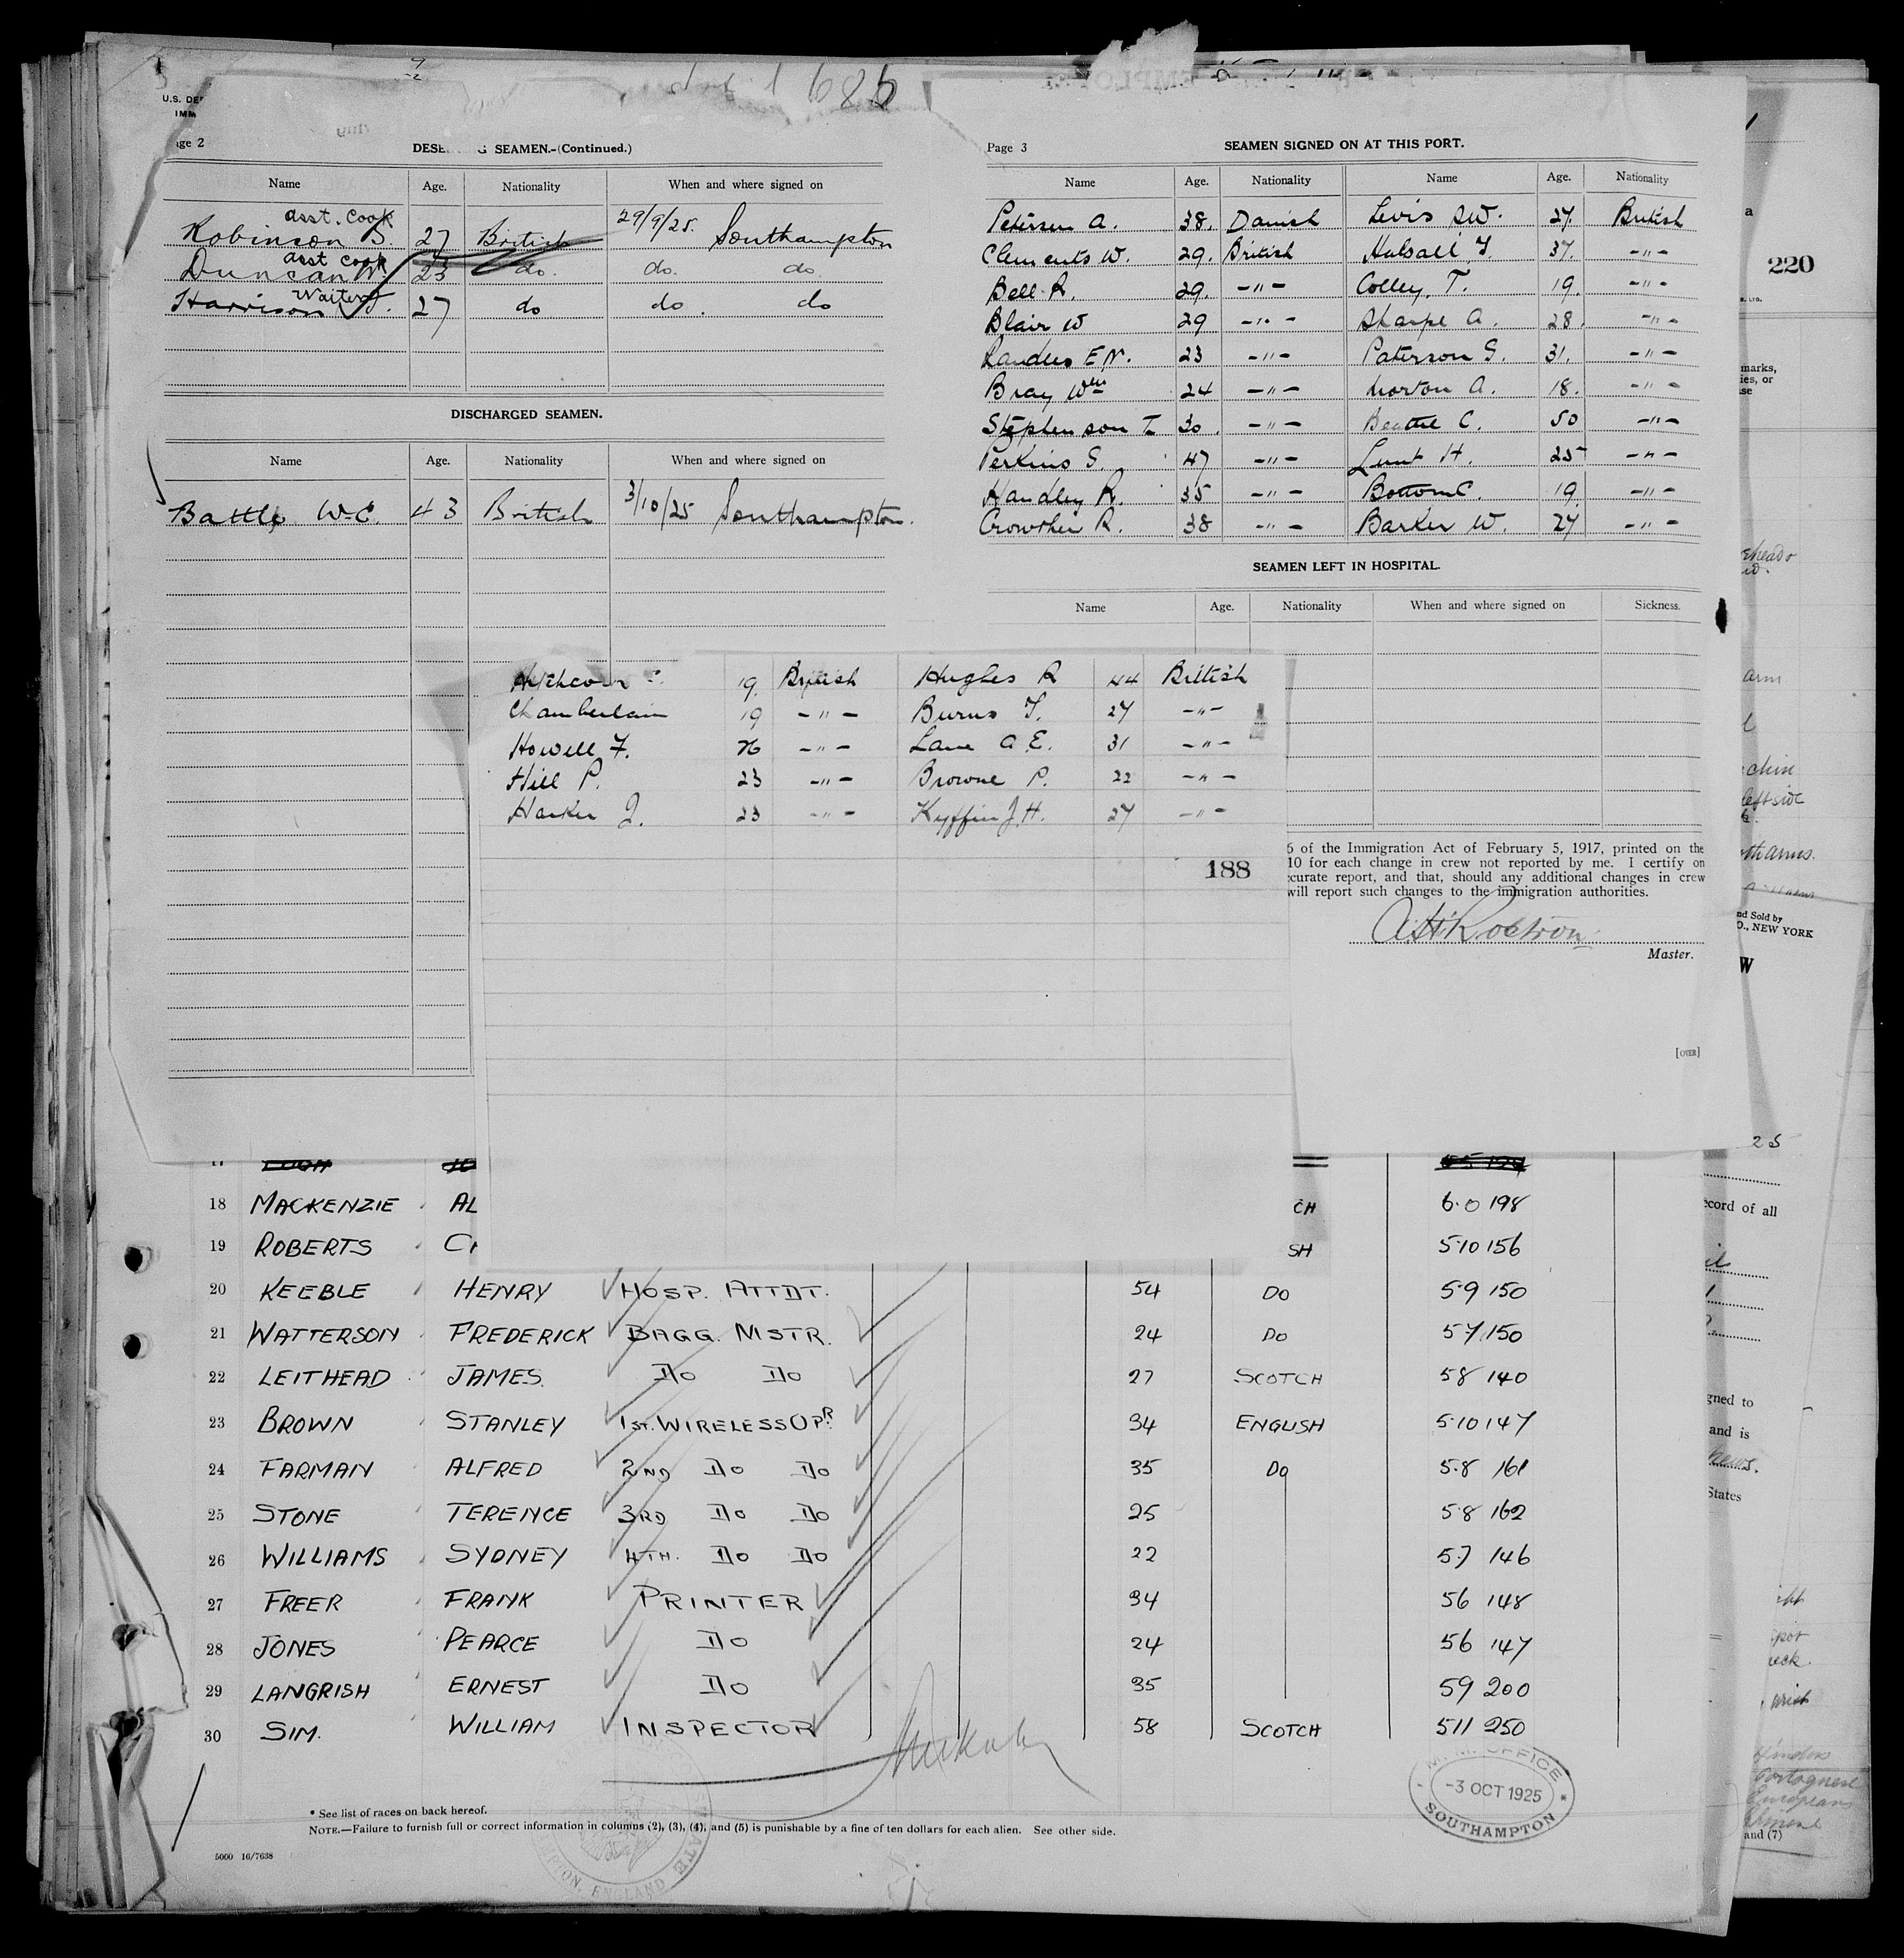 U.S. DE
IMM
Page 2
SEAMEN.-(Continued.)
Name Age. Nationality When and where signed on
asst. cook
Robinson S. 27 British 29/9/25. Southampton
asst cook
Duncan W. 23 do. do. do.
Waiter
Harrison J. 27 do do. do
DISCHARGED SEAMEN.
Name Age. Nationality When and where signed on
Battle W.E. 43 British 3/10/25 Southampton.
Page 3
SEAMEN SIGNED ON AT THIS PORT.
Name Age. Nationality Name Age. Nationality
Petersen A. 38. Danish Levis 27. British
Clements W. 29. British Halsall 37. -"-
Bell R. 29. -"- Colley. T. 19. -"-
Blair W 29 -"- Sharpe A. 28. -"-
23 -"- Paterson G. 31. -"-
Bray Wm 24 -"- Norton A. 18. -"-
Stephenson T. 30. -"- Beattie C. 50 -"-
Perkins S. 47 -"- Lunt H. 25 -"-
Handley R. 35 -"- Bottom C. 19 -"-
Crowther R. 38 -"- Barker W. 27 -"-
SEAMEN LEFT IN HOSPITAL.
Name Age. Nationality When and where signed on Sickness.
19. British Hughes R 44 British
Chamberlain 19 -"- Burns 27 -"-
Howell F. -"- Lane A.E. 31 -"-
Hill P. 23 -"- Browne P. 22 -"-
Harker J. 23 -"- Kyffin J.H. 27 -"-
188
of the Immigration Act of February 5, 1917, printed on the
10 for each change in crew not reported by me. I certify on
curate report, and that, should any additional changes in crew
will report such changes to the immigration authorities.
A.H. Rostron
Master.
[OVER]
18 MACKENZIE AL CH 6.0 198
19 ROBERTS SH 5.10 156
20 KEEBLE HENRY HOSP. ATTDT. 54 DO 5.9 150
21 WATTERSON FREDERICK BAGG. MSTR. 24 DO 5.7 150
22 LEITHEAD JAMES. DO DO 27 SCOTCH 5.8 140
23 BROWN STANLEY 1ST. WIRELESS OPR. 34 ENGLISH 5.10 147
24 FARMAN ALFRED 2ND DO DO 35 DO 5.8 161
25 STONE TERENCE 3RD DO DO 25 5.8 162
26 WILLIAMS SYDNEY 4TH. DO DO 22 5.7 146
27 FREER FRANK PRINTER 34 5 6 148
28 JONES PEARCE DO 24 5 6 147
29 LANGRISH ERNEST DO 35 5 9 200
30 SIM. WILLIAM INSPECTOR 58 SCOTCH 5 11 250
* See list of races on back hereof.
NOTE.—Failure to furnish full or correct information in columns (2), (3), (4), and (5) is punishable by a fine of ten dollars for each alien. See other side.
5000 16/7638
M.M. OFFICE
-3 OCT 1925
SOUTHAMPTON
220
marks,
ies, or
and Sold by
O., NEW YORK
W
25
ecord of all
gned to
and is
States
and (7)